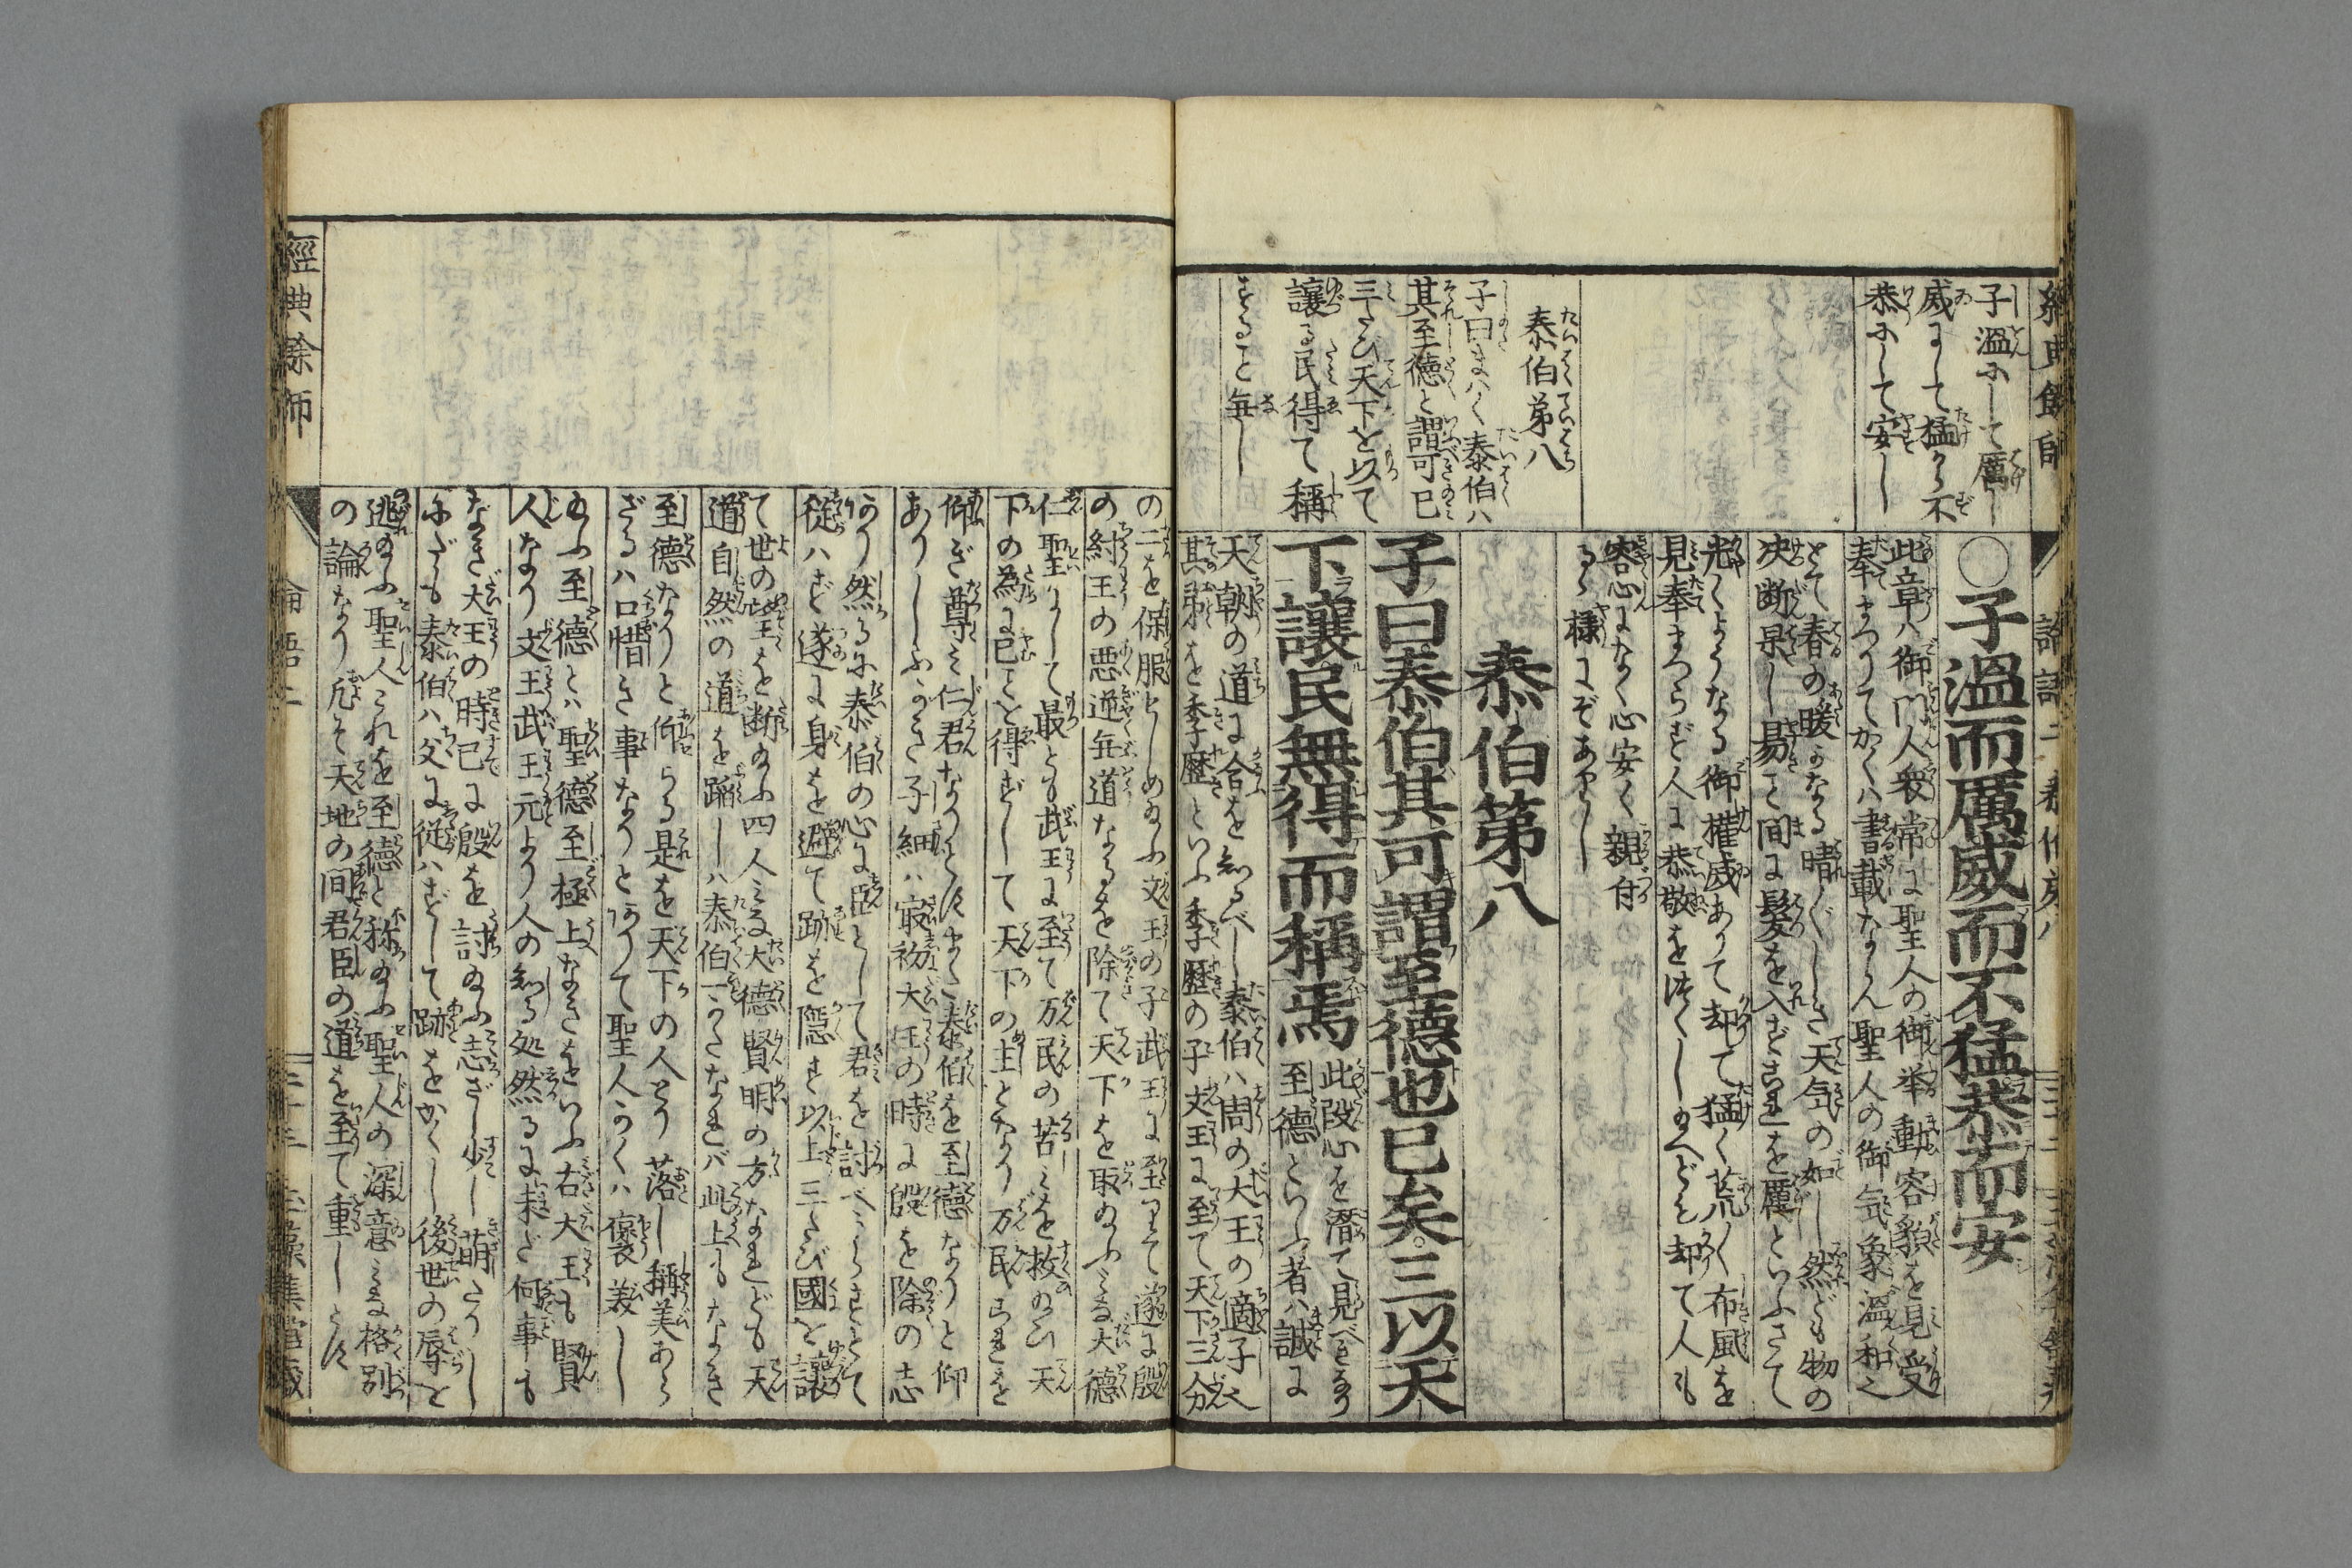 子溫にして厲し
威にして猛から不
恭にして安し
泰伯第八
子曰まハく泰伯ハ
其至德と謂可已
三たび天下を以て
讓る民得て稱
ずること毎し
○子溫而厲威而不猛恭而安
此章ハ御門人衆常に聖人の御挙動容貌を見受
奉まつりてかくハ書載ならん聖人の御気象溫和之
とて春の暖なる晴〳〵しき天気の如し然ども物の
决断果し易こと間に髮を入ざるを厲といふさて
光〳〵ようなる御權威ありて却て猛く荒〳〵布風を
見奉まつらず人に恭敬を
容心になく心安く親付
るゝ樣にぞあらし
泰伯第八
子曰泰伯其可謂至德也已矣三以天
下讓民無得而稱焉
此段心を潛て見べき
至德といふ者ハ誠に
天朝の道に合を知るべし泰伯ハ周の大王の適子之
其弟を季歷といふ季歷の子文王に至て天下三分
の二を保服せしめ給ふ文王の子武王に至りて遂に殷
の紂王の悪逆無道なるを除て天下を取給ふ大德
仁聖にして最とも武王に至て万民の苦を救給ひ天
下の為に已ことを得ずして天下の主となり万民これを
仰ぎ尊み仁君なりとす泰伯を至德なりと仰
ありしふかき子細ハ最初大王の時に殷を除の志
あり然るに泰伯の心に臣として君を討べからずとて
従ハず遂に身を避て跡を隱す以上三たび國を讓
て世の望を断給ふ四人みな大德賢明の方なれども天
道自然の道を蹈しハ泰伯一人なれバ此上もなき
至德なりと仰らる是を天下の人とり落し稱美あら
ざるハ口惜き事なりとありて聖人かくハ褒美し
給ふ至德とハ聖德至極上なきをいふ右大王も賢
人なり文王武王元より人の知る処然るに未だ何事も
なき大王の時已に殷を討給ふ志ざし少し萠たりし
にだも泰伯ハ父に従ハずして跡をかくし後世の辱を
逃給ふ聖人これを至德と称給ふ聖人の深意格別
の論なり凡そ天地の間君臣の道を至て重しとす
經典餘師
論語二